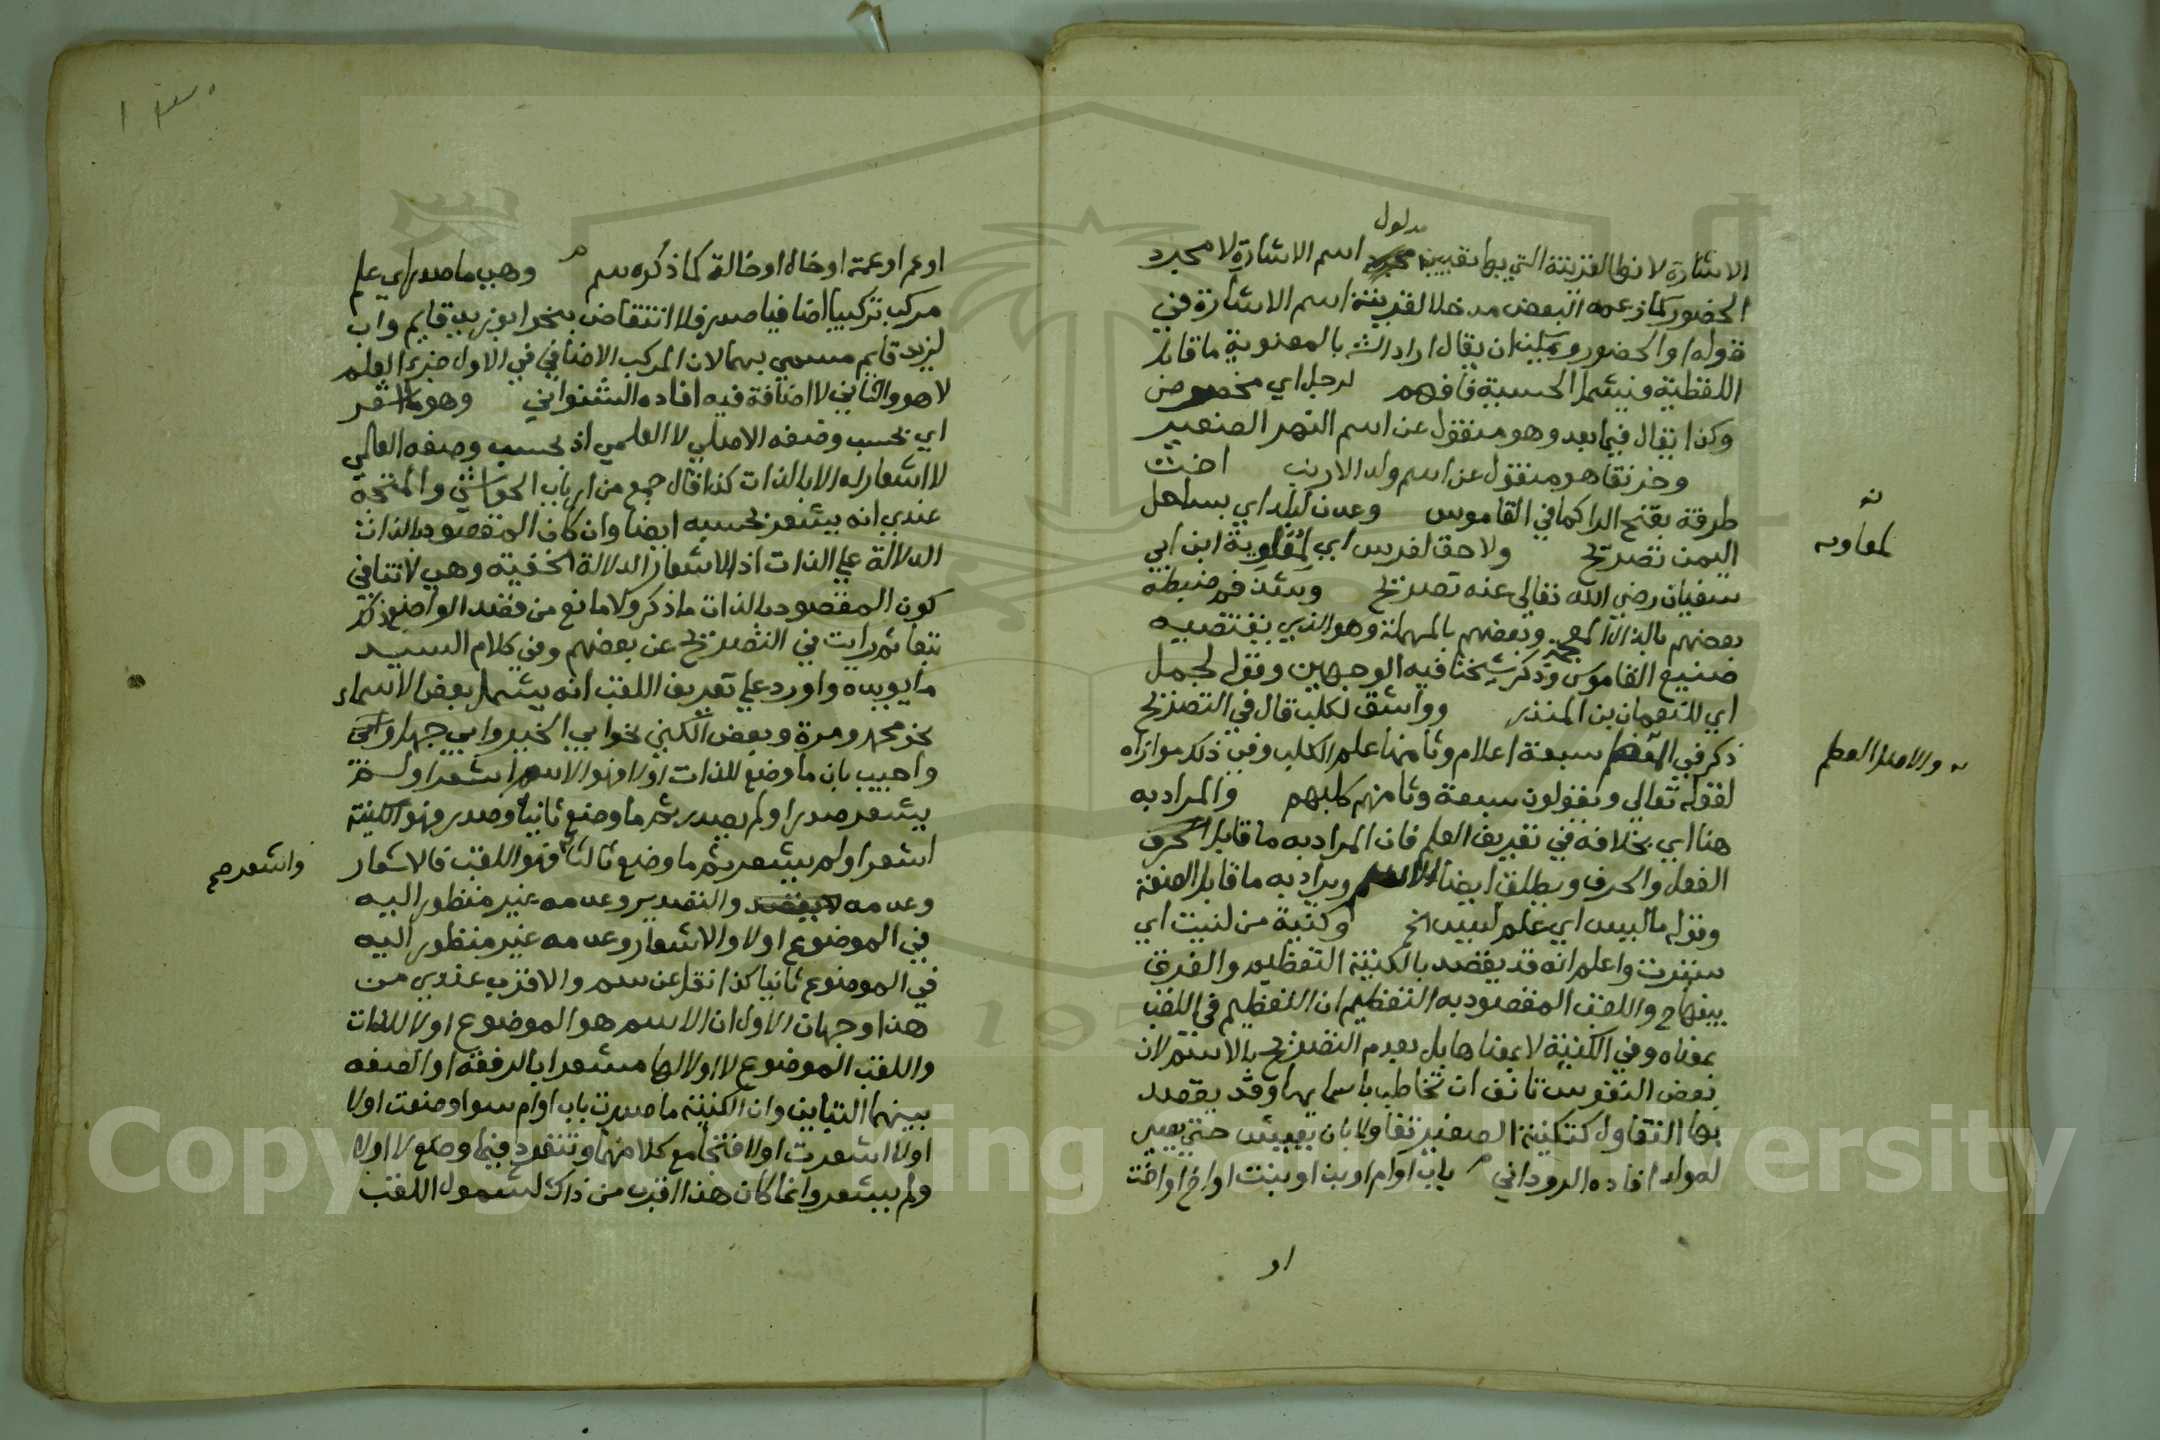 مدلول
الاشارة لانها القرينة التي بها تعيين اسم الاشارة لا مجرد
الحضور كما زعمه البعض مدخلا لقرينة اسم الاشارة في
قوله او الحضور ويمكن ان يقال اراد الش بالمعنوية ما قابل
اللفظية فيشمل الحسية فافهم لرجل اي مخصوص
وكذا يقال فيما بعد وهو منقول عن اسم النهر الصغير
وخرنقا هو منقول عن اسم ولد الارنب اخت
طرفة بفتح الرا كما في القاموس وعدن لبلد اي بساحل
اليمن تصريح ولاحق لفرس اي لمعاوية ابن ابي
سفيان رضي الله تعالى عنه تصريح وشذقم ضبطه
بعضهم بالذال المعجمة وبعضهم بالمهملة وهو الذي يقتضيه
صنيع القاموس وذكر شيخنا فيه الوجهين وقوله لجمل
اي للنعمان بن المنذر وواشق لكلب قال في التصريح
ذكر في النظم سبعة اعلام وثامنها علم الكلب وفي ذلك موازاه
لقوله تعالى ويقولون سبعة وثامنهم كلبهم والمراد به
هنا اي بخلافه في تعريف العلم فان المراد به ما قابل الحرف
الفعل والحرف ويطلق ايضا الاسم ويراد به ما قابل الصفة
وقوله ما ليس اي علم ليس الخ وكنية من كنيت اي
سترت واعلم انه قد يقصد بالكنية التعظيم والفرق
بينها واللقب المقصود به التعظيم ان التعظيم في اللقب
بمعناه وفي الكنية لا بمعناها بل بعدم التصريح بالاسم لان
بعض النفوس تانف ان تخاطب باسمايها وقد يقصد
بها التفاول كتكنية الصغير تفاولا بان يعيش حتى يصير
له ولد افاده الروداني باب او ام او بن او بنت او اخ او اخت
او
نه
لمعاويه
والاصل العلم
او عم او عمة او خال او خالة كما ذكره سم وهي ما صدر اي علم
مركب تركيبا اضافيا صدر فلا انتقاض بنحو ابو زيد قايم واب
لزيد قايم مسمى بهما لان المركب الاضافي في الاول جزء العلم
لا هو والثاني لا اضافة فيه افاده الشنواني وهو ما اشعر
اي بحسب وضعه الاصلي لا العلمي اذ بحسب وضعه العلمي
لا اشعار له الا بالذات كذا قال جمع من ارباب الحواشي والمتجه
عندي انه يشعر بحسبه ايضا وان كان المقصود بالذات
الدلالة على الذات اذ الاشعار الدلالة الخفية وهي لا تنافي
كون المقصود بالذات ما ذكر ولا مانع من قصد الواضع ذلك
تبعا ثم رايت في التصريح عن بعضهم وفي كلام السيد
ما يويده واورد على تعريف اللقب انه يشمل بعض الاسماء
نحو محمد ومرة وبعض الكنى نحو ابي الخير وابي جهل
واجيب بان ما وضع للذات اولا فهو الاسم اشعر اولم
يشعر صدر او لم يصدر ثم ما وضع ثانيا وصدر فهو الكنية
اشعر او لم يشعر ثم ما وضع ثالثا فهو اللقب فالاشعار
وعدمه والتصدير وعدمه غير منظور اليه
في الموضوع اولا والاشعار وعدمه غير منظور اليه
في الموضوع ثانيا كذا نقل عن سم والاقرب عندي من
هذا وجهان الاول ان الاسم هو الموضوع اولا للذات
واللقب الموضوع لا اولا لها مشعرا بالرفعة او الضعة
بينهما التباين وان الكنية ما صدرت باب او ام سوا وضعت اولا
او لا اشعرت اولا فتجامع كلا منهما وتنفرد فيما وضع لا اولا
ولم يشعر وانما كان هذا اقرب من ذاك لشمول اللقب
واشعر صح